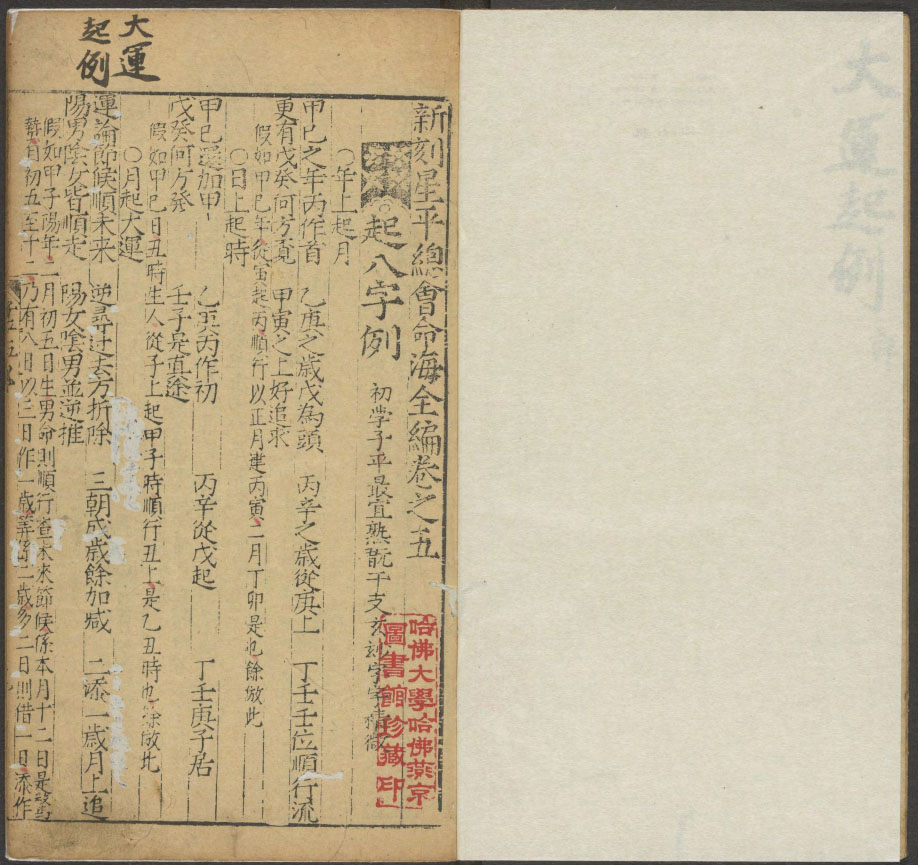 大運
起例
新刻星平總會命海全編卷之五
起八字例
初學子平最宜熟翫干支亥刻字字精微
○年上起月
甲己之年丙作首 乙庚之歲戊為頭 丙辛之歲從庚上 丁壬壬位順行流
更有戊癸何方覓 甲寅之上好追求
假如甲己年從寅起丙順行以正月建丙寅二月丁卯是也餘倣此
○日上起時
甲己還加甲 乙庚丙作初 丙辛從戊起 丁壬庚子居
戊癸何方發 壬子是真途
假如甲己日丑時生人從子上起甲子時順行丑上是乙丑時也餘倣此
○月起大運
運論節候順未來 逆尋過去方折除 三朝成歲餘加減 二添一歲月上追
陽男陰女皆順走 陽女陰男並逆推
假如甲子陽年二月初五日生男命則順行查未來節候係本月十二日是驚
蟄自初五至十二乃有八日以三日作一歲筭係二歲多二日則借一日添作
哈佛大學哈佛燕京
圖書館珍藏印
大運起例